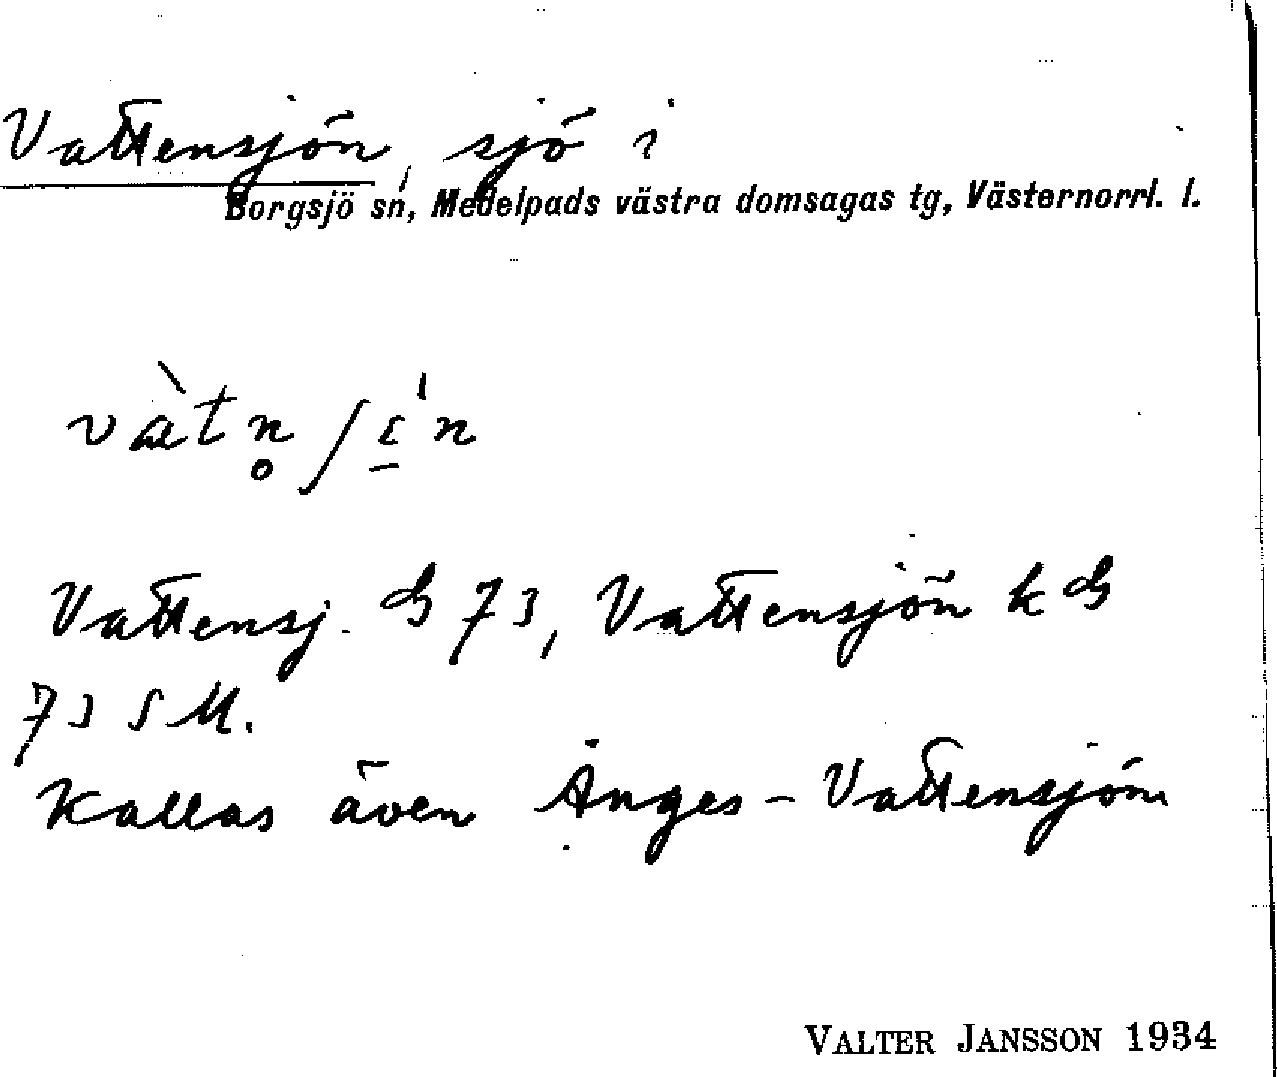 Vattensjön, sjö i
Borgsjö sn, Medelpads västra domsagas tg, Västernorrl. l.
Vattensj. G 73, Vattensjön k G
73 S M.
Kallas även Ånges-Vattensjön
VALTER JANSSON 1934